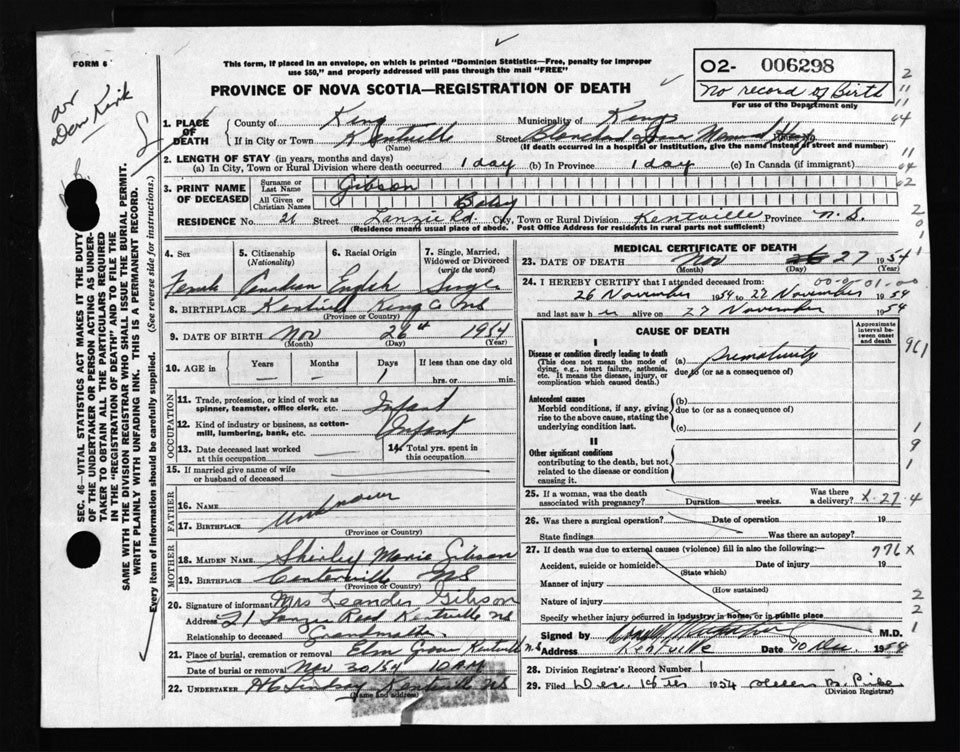 FORM 6
This form, if placed in an envelope, on which is printed "Dominion Statistics—Free, penalty for improper
use $50," and properly addressed will pass through the mail "FREE"
PROVINCE OF NOVA SCOTIA—REGISTRATION OF DEATH
O2- 006298
No record of Birth
For use of the Department only
1. PLACE OF DEATH
County of Kings Municipality of Kings
If in City or Town Kentville Street Blanchard
(Name) (If death occurred in a hospital or institution, give the name instead of street and number)
2. LENGTH OF STAY (in years, months and days)
(a) In City, Town or Rural Division where death occurred 1 day (b) In Province 1 day (c) In Canada (if immigrant)
3. PRINT NAME OF DECEASED
Surname or Last Name Gibson
All Given or Christian Names Baby
RESIDENCE No. 21 Street Lanzie Rd. City, Town or Rural Division Kentville Province N.S.
(Residence means usual place of abode. Post Office Address for residents in rural parts not sufficient)
4. Sex 5. Citizenship (Nationality) 6. Racial Origin 7. Single, Married, Widowed or Divorced (write the word)
Female Canadian English Single
8. BIRTHPLACE Kentville Kings Co NS
(Province or Country)
9. DATE OF BIRTH Nov 26th 1954
(Month) (Day) (Year)
10. AGE in Years Months Days If less than one day old
— — 1 hrs. or min.
OCCUPATION
11. Trade, profession, or kind of work as
spinner, teamster, office clerk, etc. Infant
12. Kind of industry or business, as cotton-
mill, lumbering, bank, etc. Infant
13. Date deceased last worked
at this occupation
14. Total yrs. spent
in this occupation
15. If married give name of wife
or husband of deceased
FATHER
16. NAME Unknown
17. BIRTHPLACE
(Province or Country)
MOTHER
18. MAIDEN NAME Shirley Marie Gibson
19. BIRTHPLACE Centerville NS
(Province or Country)
20. Signature of informant Mrs Leander Gibson
Address 21 Lanzie Road Kentville NS
Relationship to deceased Grandmother
21. Place of burial, cremation or removal Elm Grove Kentville N.S.
Date of burial or removal Nov 30/54 10 AM
22. UNDERTAKER Kentville NS
(Name and address)
MEDICAL CERTIFICATE OF DEATH
23. DATE OF DEATH Nov 27 1954
(Month) (Day) (Year)
24. I HEREBY CERTIFY that I attended deceased from:
26 November 1954 to 27 November 1954
and last saw her alive on 27 November 1954
CAUSE OF DEATH
Approximate interval between onset and death
I
Disease or condition directly leading to death
(This does not mean the mode of
dying, e.g., heart failure, asthenia,
etc. It means the disease, injury, or
complication which caused death.)
(a) Prematurity
due to (or as a consequence of)
Antecedent causes
Morbid conditions, if any, giving
rise to the above cause, stating the
underlying condition last.
(b)
due to (or as a consequence of)
(c)
II
Other significant conditions
contributing to the death, but not
related to the disease or condition
causing it.
25. If a woman, was the death
associated with pregnancy? Duration weeks. Was there
a delivery?
26. Was there a surgical operation? Date of operation 19
State findings Was there an autopsy?
27. If death was due to external causes (violence) fill in also the following:—
Accident, suicide or homicide? Date of injury 19
(State which)
Manner of injury
(How sustained)
Nature of injury
Specify whether injury occurred in industry, in home, or in public place
Signed by M.D.
Address Kentville Date 10 Dec. 1954
28. Division Registrar's Record Number 1
29. Filed Dec. 1954
(Division Registrar)
961
X-27-4
776 X
SEC. 46—VITAL STATISTICS ACT MAKES IT THE DUTY
OF THE UNDERTAKER OR PERSON ACTING AS UNDER-
TAKER TO OBTAIN ALL THE PARTICULARS REQUIRED
IN THE "REGISTRATION OF DEATH" AND TO FILE THE
SAME WITH THE DIVISION REGISTRAR WHO SHALL ISSUE THE BURIAL PERMIT.
WRITE PLAINLY WITH UNFADING INK. THIS IS A PERMANENT RECORD.
Every item of information should be carefully supplied. (See reverse side for instructions.)